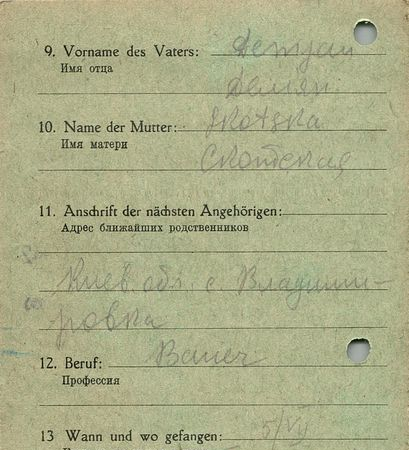 9. Vorname des Vaters: Demjan
Имя отца
Демян
10. Name der Mutter: Skotska
Имя матери
Скотская
11. Anschrift der nächsten Angehörigen:
Адрес ближайших родственников
Киев. обл. с. Владими-
ровка
12. Beruf: Bauer
Профессия
13 Wann und wo gefangen: 5/VII